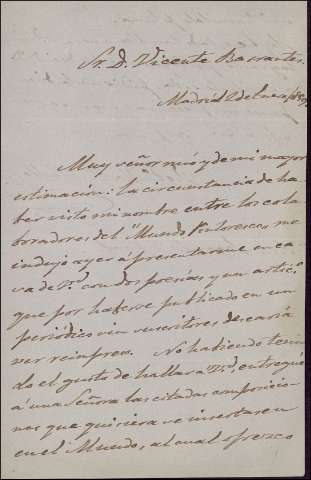 Sr. D. Vicente Barrantes.
Madrid 2 de
Muy señor mio y de mi mayor
estimacion: la circunstancia de ha
ber visto mi nombre entre los cola
boradores del "Mundo Pintoresco, me
indujo ayer á presentarme en ca
sa de Vd. con dos poesías y un articº
que por haberse publicado en un
periódico sin suscritores desearia
ver reimpreso. No habiendo teni
do el gusto de hallar a Vd. entregué
á una Señora las citadas composicio
nes que quisiera se insertasen
en el Mundo, al cual ofrezco